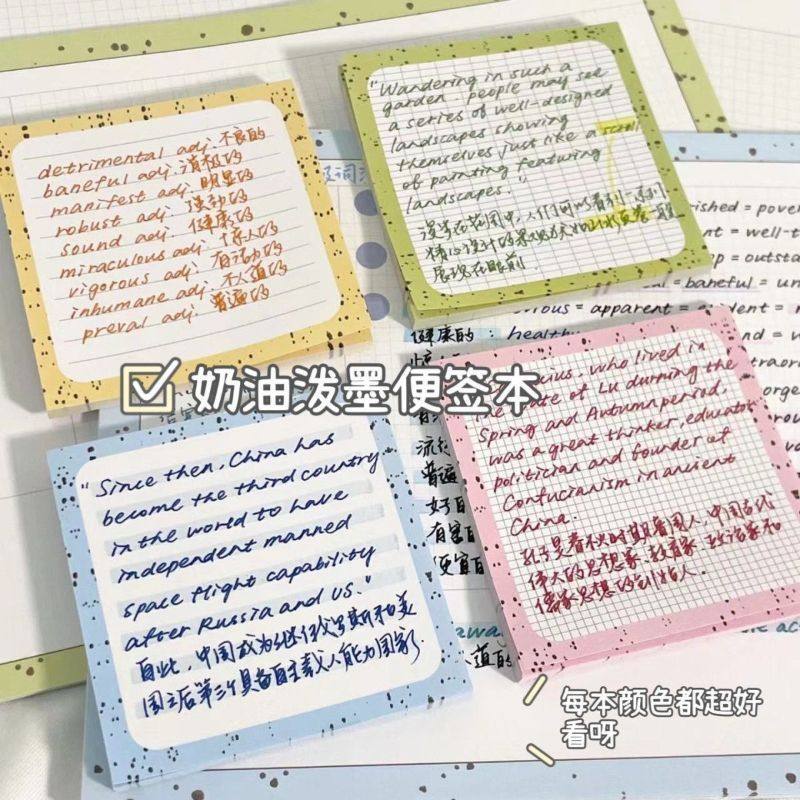 detrimental adj. 不良的
baneful adj. 消极的
manifest adj. 明显的
robust adj. 强劲的
sound adj. 健康的
miraculous adj. 惊人的
vigorous adj. 有活力的
inhumane adj. 不人道的
preval adj. 普遍的
"Wandering in such a
garden. people may see
a series of well-designed
landscapes showing
themselves just like a scroll
of painting featuring
landscapes."
漫步在花园中,人们可以看到一系列
精心设计的景观犹如山水画卷一般
展现在眼前.
奶油泼墨便签本
"Since then, China has
become the third country
in the world to have
independent manned
space flight capability
after Russia and US."
自此,中国成为继俄罗斯和美
国之后第三个具备自主载人能力国家
who lived in
the state of Lu durning the
Spring and Autumn period,
was a great thinker, educator
politician and founder of
Confucianism in ancient
China.
孔子是春秋时期鲁国人,中国古代
伟大的思想家、教育家、政治家和
儒家思想的创始人.
= pover
= well-t
= outsta
= baneful = un
= apparent =
健康的
普遍
每本颜色都超好
看呀